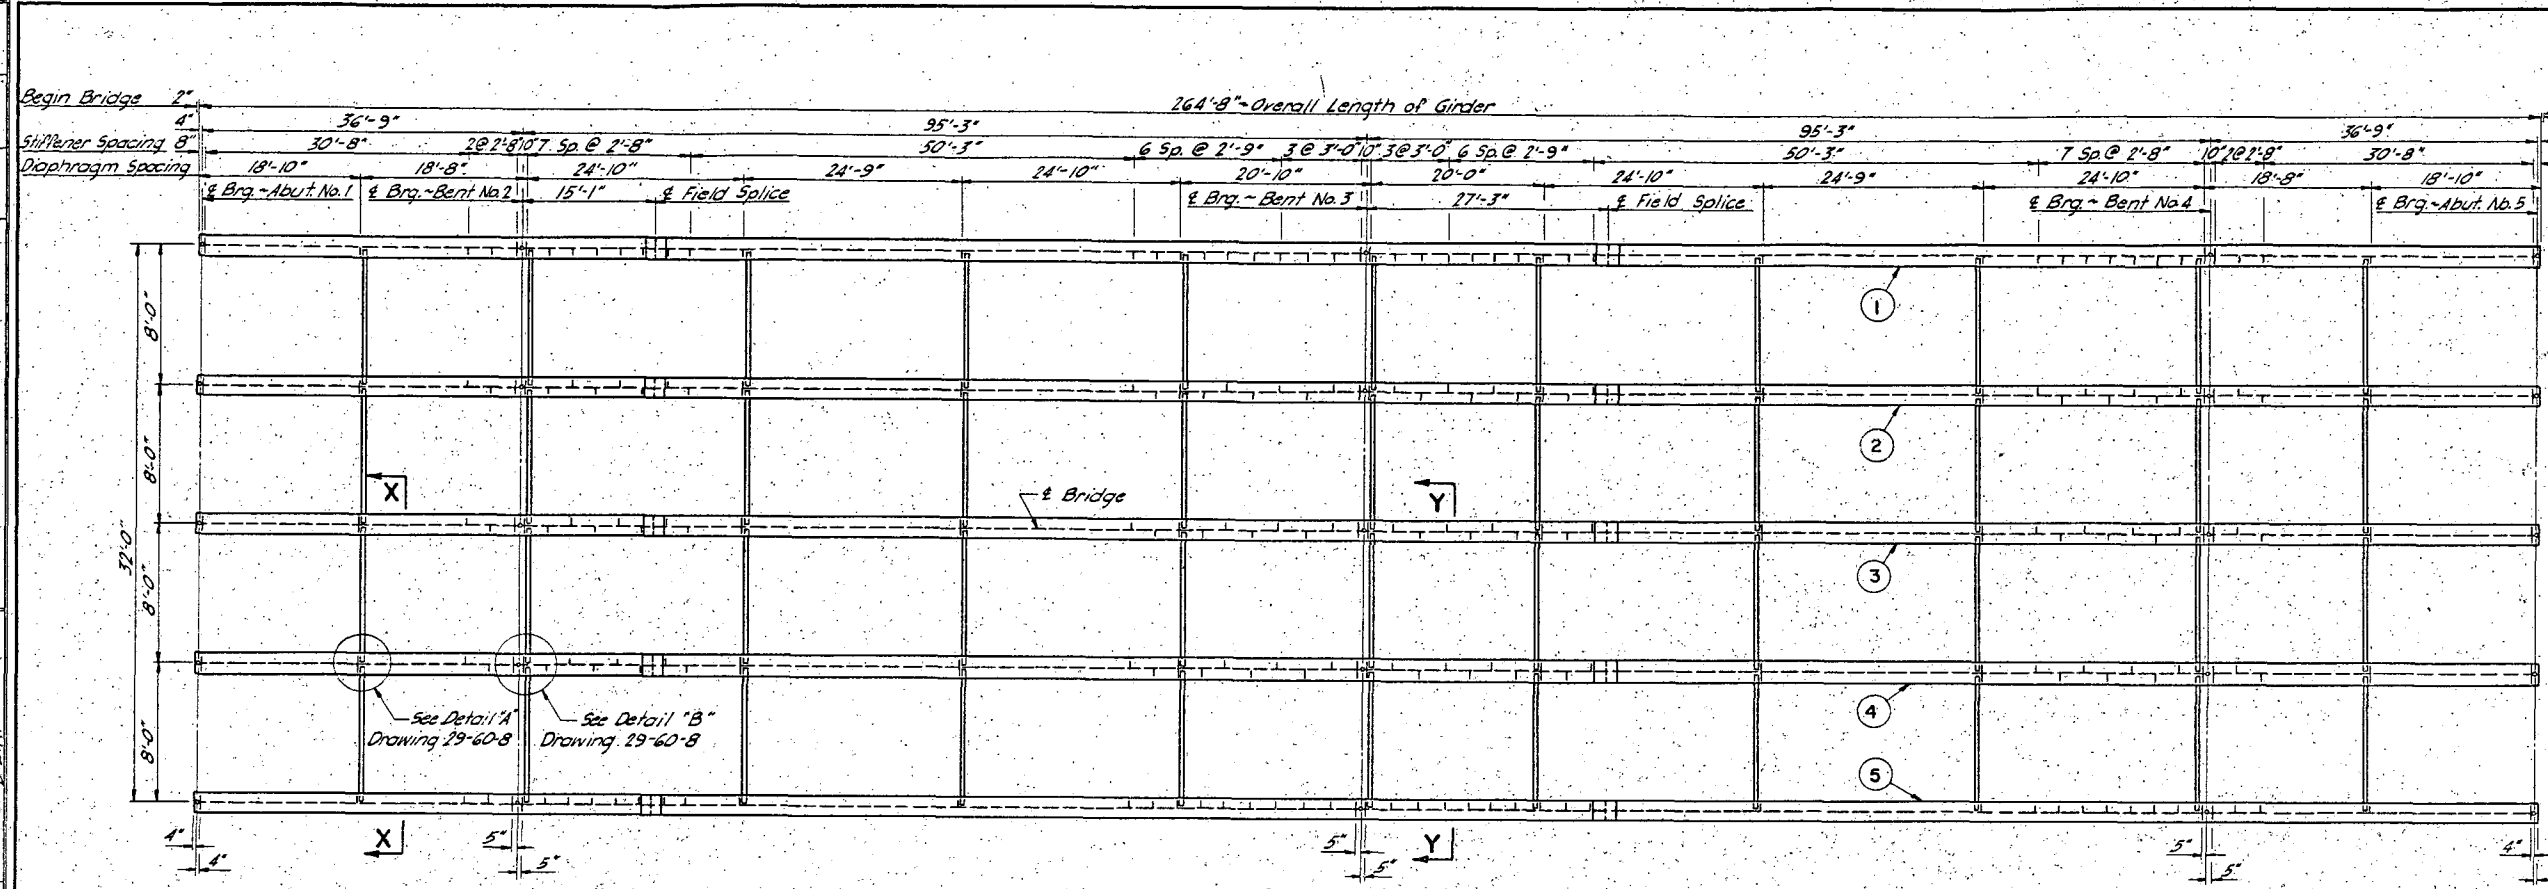 Begin Bridge 2"
264'-8"~Overall Length of Girder
4" 36'-9" 95'-3" 95'-3" 36'-9"
Stiffener Spacing 8" 30'-8" 2@2'-8" 10" 7 Sp. @ 2'-8" 50'-3" 6 Sp. @ 2'-9" 3 @ 3'-0" 10" 3@3'-0" 6 Sp.@ 2'-9" 50'-3" 7 Sp.@ 2'-8" 10" 2@2'-8" 30'-8"
Diaphragm Spacing 18'-10" 18'-8" 24'-10" 24'-9" 24'-10" 20'-10" 20'-0" 24'-10" 24'-9" 24'-10" 18'-8" 18'-10"
℄ Brg.~Abut. No.1 ℄ Brg.~Bent No.2 15'-1" ℄ Field Splice ℄ Brg.~Bent No.3 27'-3" ℄ Field Splice ℄ Brg.~Bent No.4 ℄ Brg.~Abut. No.5
8'-0"
1
8'-0"
2
X
℄ Bridge
Y
32'-0"
8'-0"
3
8'-0"
See Detail "A"
Drawing 29-60-8
See Detail "B"
Drawing 29-60-8
4
5
4" X 5" 5" Y 5" 4"
4" 5" 5" 5"